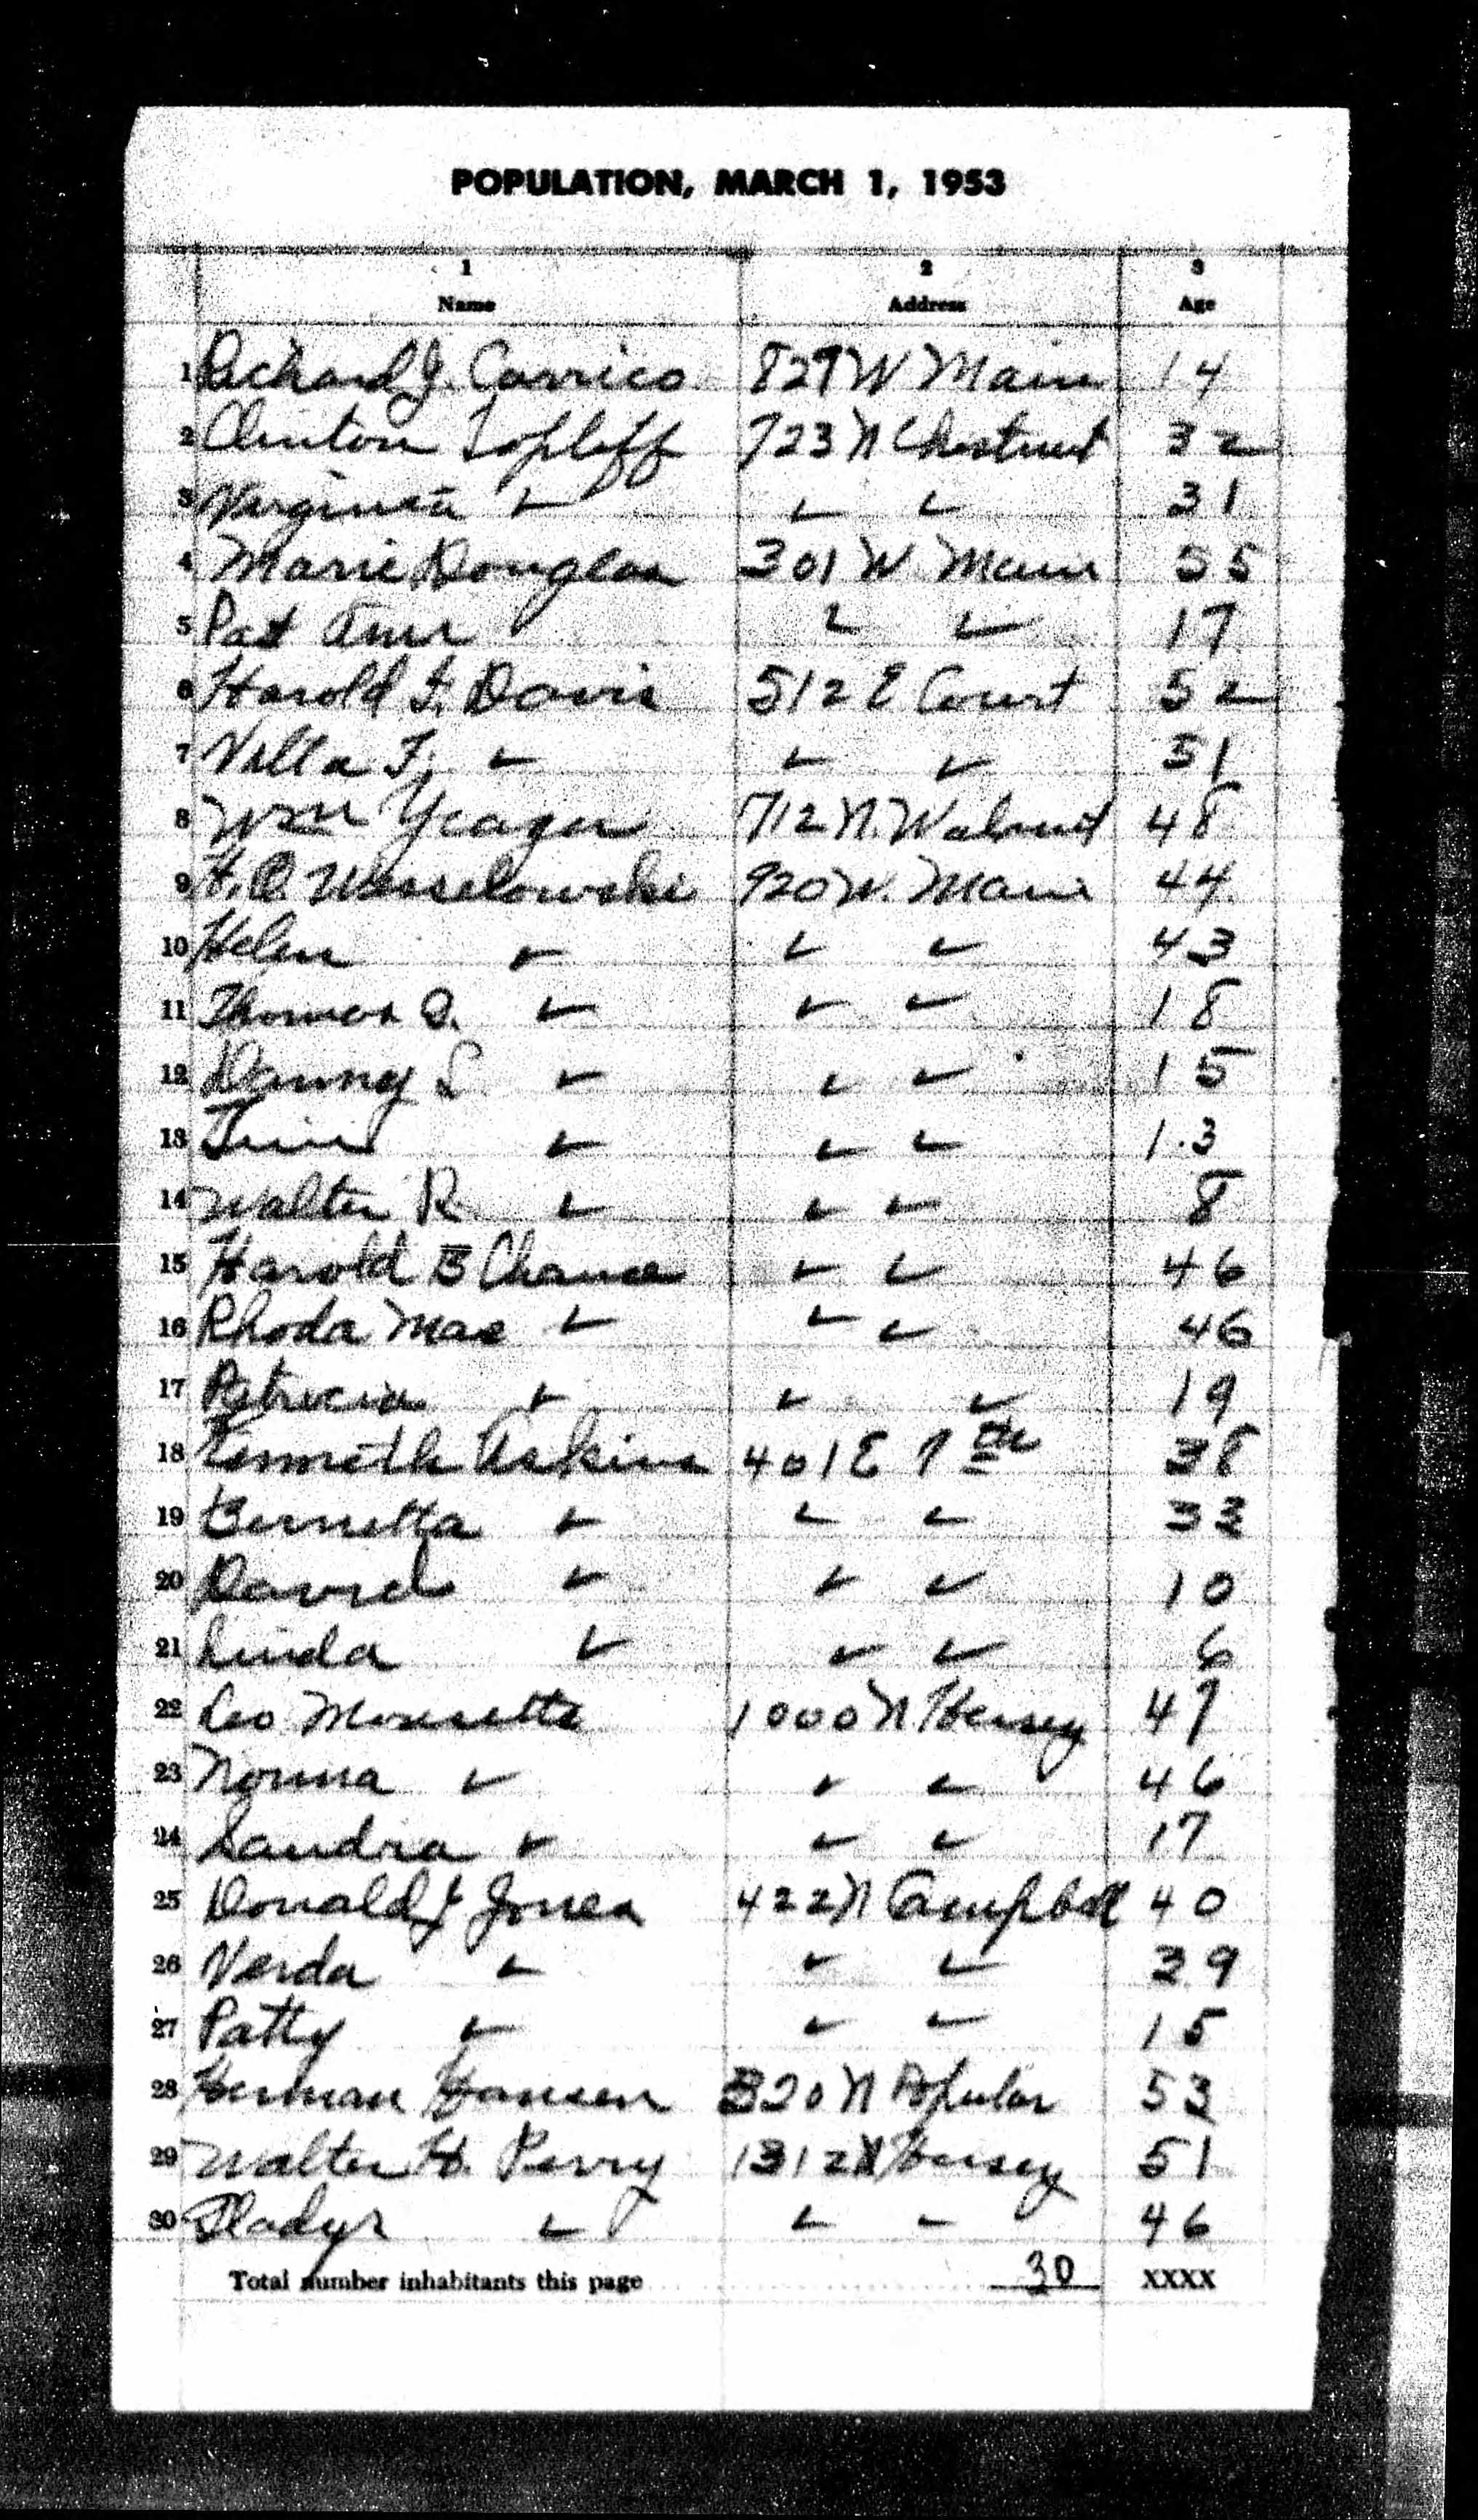 POPULATION, MARCH 1, 1953
1 2 3
Name Address Age
1 Richard J. Carrico 829 W Main 14
2 Clinton Topliff 723 N Chestnut 32
3 Virginia ✓ ✓ ✓ 31
4 Marie Douglas 301 W. Main 55
5 Pat Ann ✓ ✓ 17
6 Harold F. Davis 512 E Court 52
7 Villa F. ✓ ✓ ✓ 51
8 Wm Yeager 712 N. Walnut 48
9 H. O. Wesselowski 920 W. Main 44
10 Helen ✓ ✓ ✓ 43
11 Thomas O. ✓ ✓ ✓ 18
12 Danny L. ✓ ✓ ✓ 15
13 ✓ ✓ ✓ 13
14 Walter R. ✓ ✓ ✓ 8
15 Harold B Chance ✓ ✓ 46
16 Rhoda Mae ✓ ✓ ✓ 46
17 Patricia ✓ ✓ ✓ 19
18 Kenneth Askins 401 E 7th 38
19 Bernetta ✓ ✓ ✓ 33
20 David ✓ ✓ ✓ 10
21 Linda ✓ ✓ ✓ 6
22 Leo Morisette 1000 N. Hersey 47
23 Norma ✓ ✓ ✓ 46
24 Sandra ✓ ✓ ✓ 17
25 Donald J Jones 422 N Campbell 40
26 Verda ✓ ✓ ✓ 39
27 Patty ✓ ✓ ✓ 15
28 Herman Hansen 320 N Popular 53
29 Walter H. Perry 1312 N Hersey 51
30 Gladys ✓ ✓ ✓ 46
Total number inhabitants this page 30 XXXX